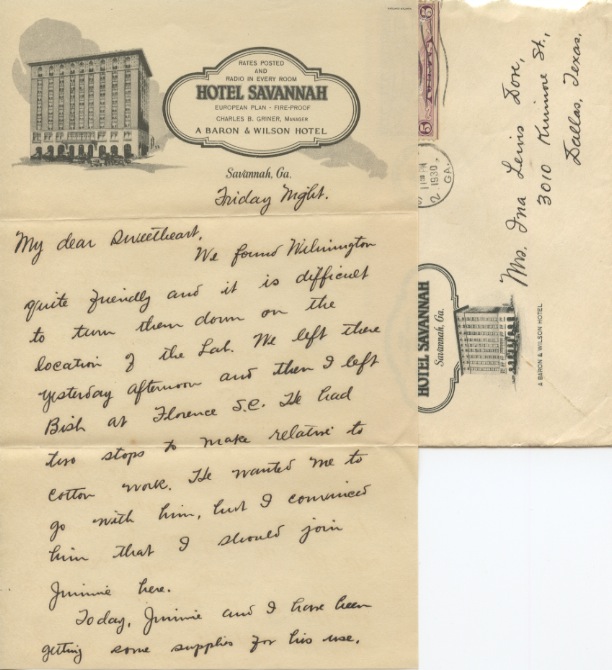 RATES POSTED
AND
RADIO IN EVERY ROOM
HOTEL SAVANNAH
EUROPEAN PLAN - FIRE-PROOF
CHARLES B. GRINER, MANAGER
A BARON & WILSON HOTEL
Savannah, Ga.
Friday Night.
My dear Sweetheart,
We found Wilmington
quite friendly and it is difficult
to turn them down on the
location of the Lab. We left there
yesterday afternoon and then I left
Bish at Florence S.C. He had
two stops to make relative to
cotton work. He wanted me to
go with him, but I convinced
him that I should join
Jimmie here.
Today, Jimmie and I have been
getting some supplies for his use.
5
5
2 1930
GA.
Mrs. Ina Lewis Dove,
3010
St.,
Dallas, Texas.
HOTEL SAVANNAH
Savannah, Ga.
A BARON & WILSON HOTEL